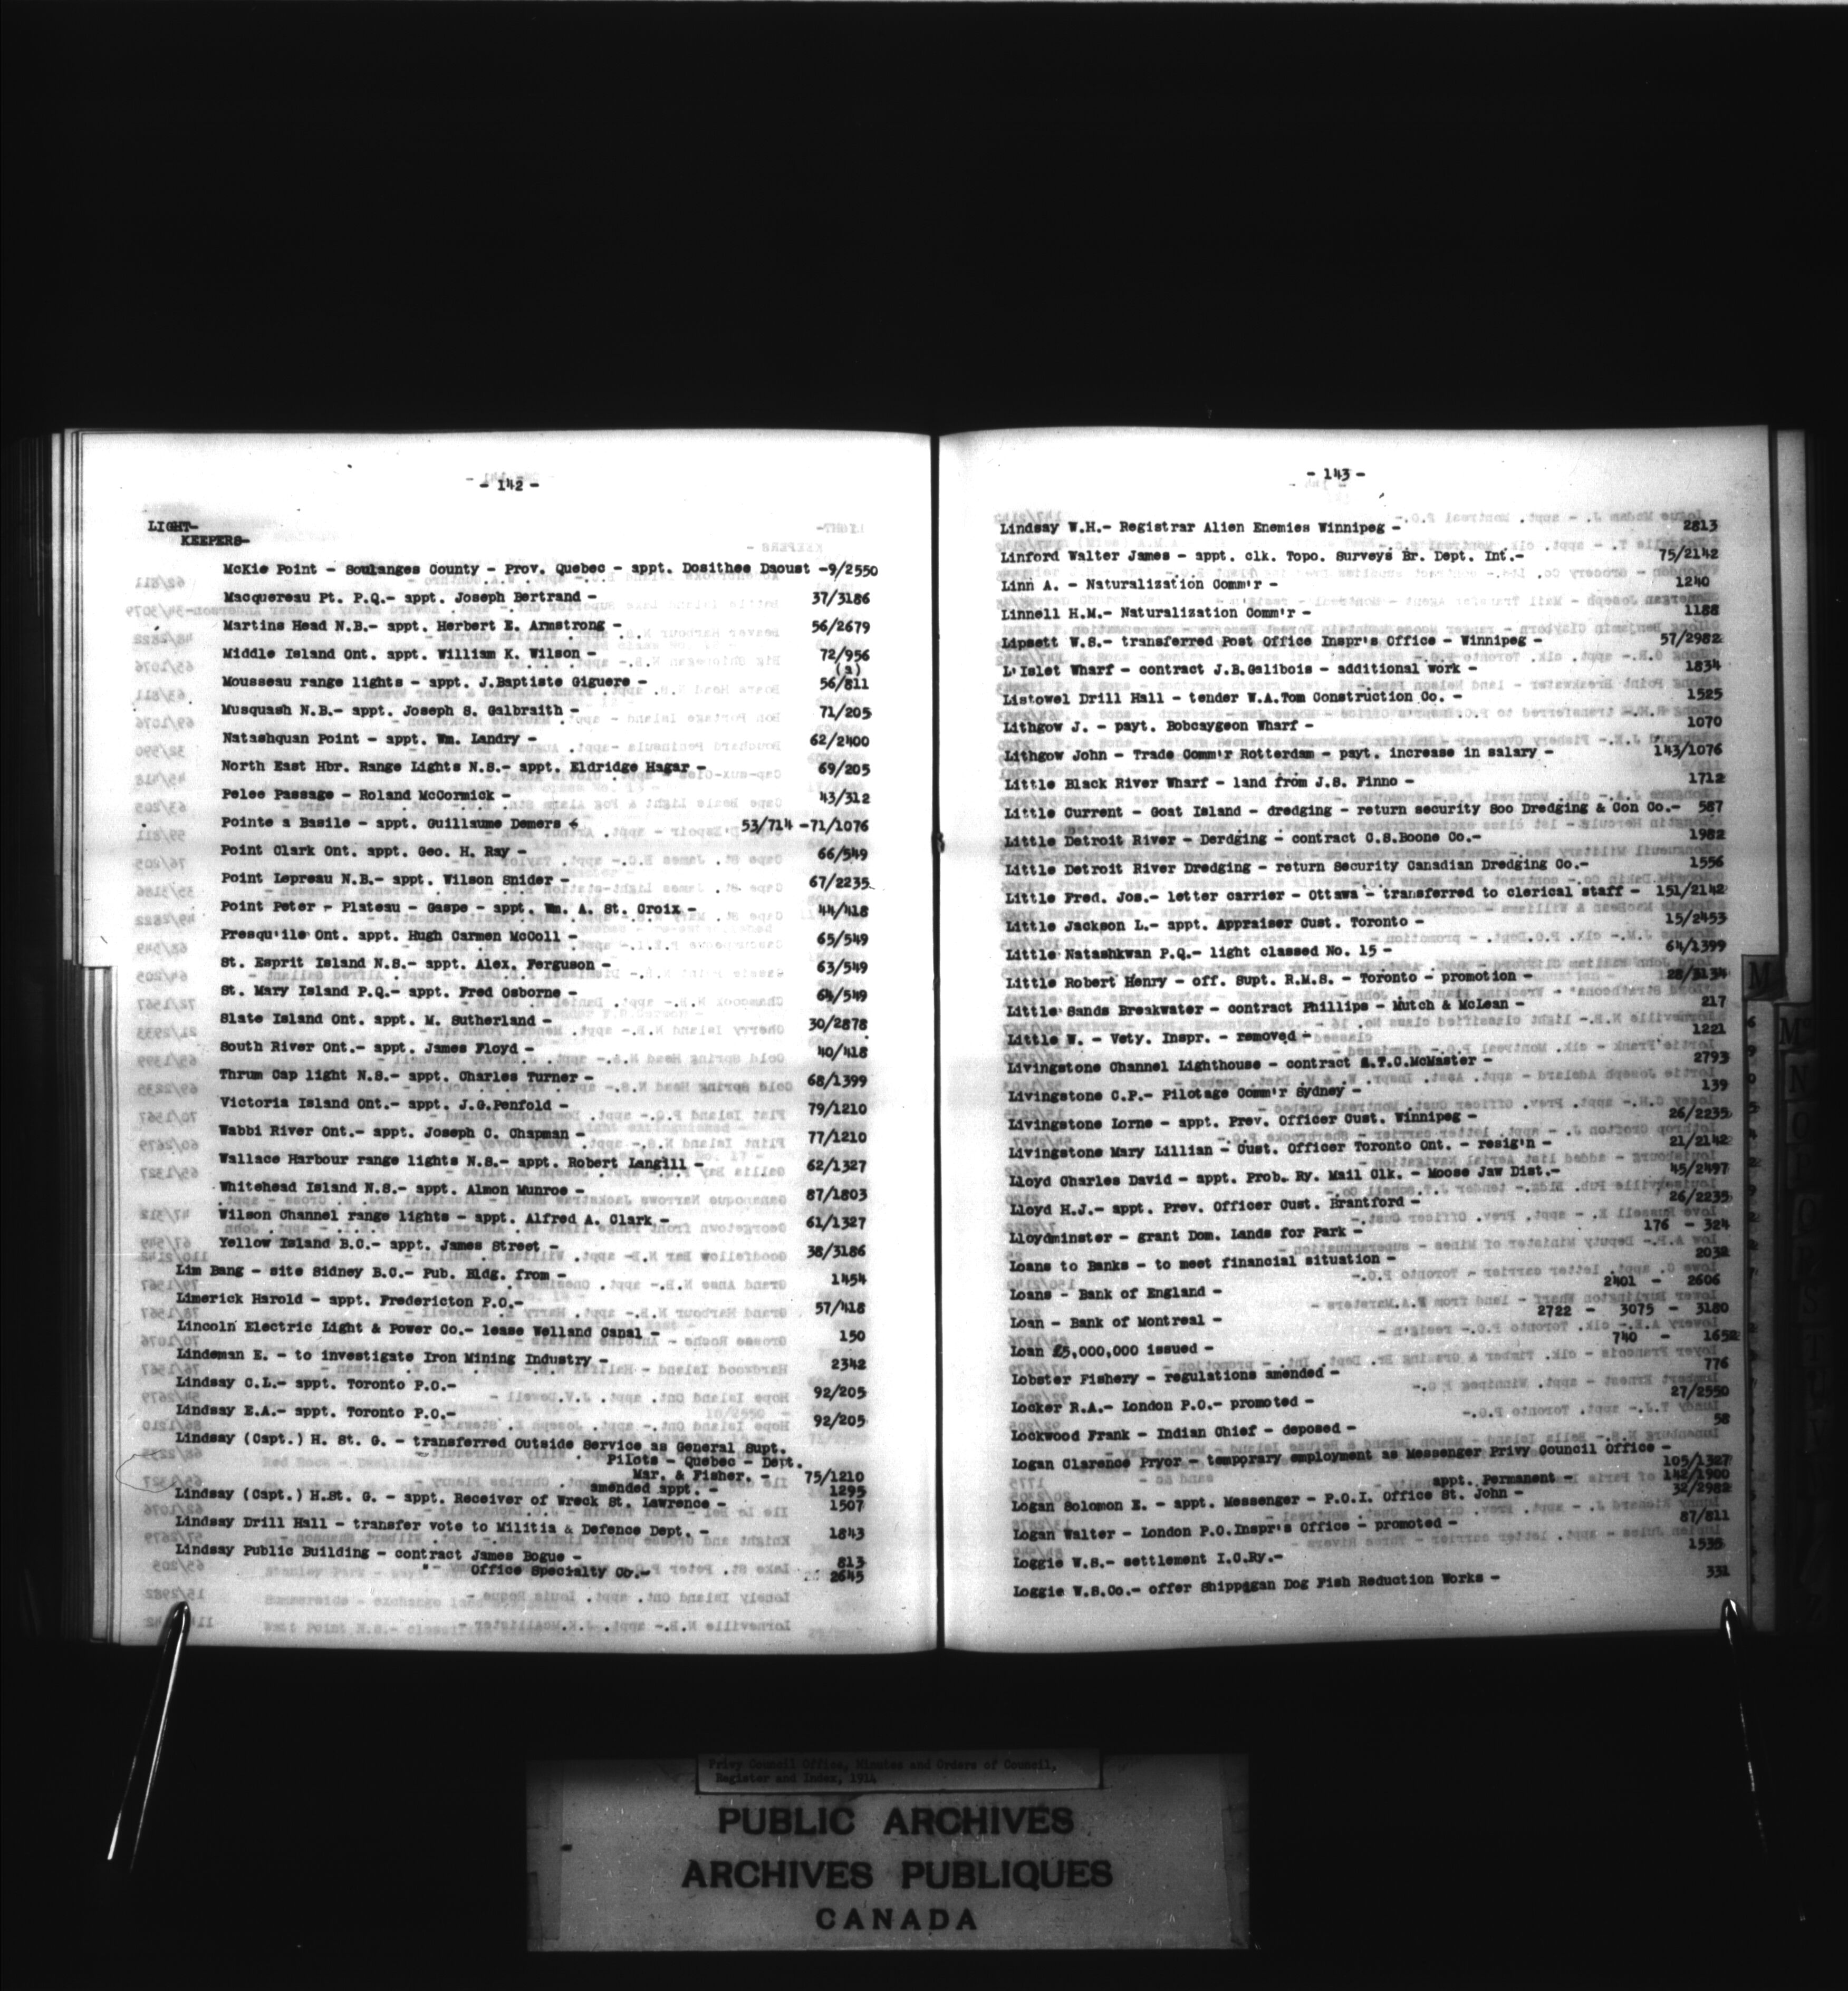 - 142 -
LIGHT-
KEEPERS-
McKie Point - Soulanges County - Prov. Quebec - appt. Dosithee Daoust -9/2550
Macquereau Pt. P.Q.- appt. Joseph Bertrand - 37/3186
Martins Head N.B.- appt. Herbert E. Armstrong - 56/2679
Middle Island Ont. appt. William K. Wilson - 72/956
(a)
Mousseau range lights - appt. J.Baptiste Giguere - 56/811
Musquash N.B.- appt. Joseph S. Galbraith - 71/205
Natashquan Point - appt. Wm. Landry - 62/2400
North East Hbr. Range Lights N.S.- appt. Eldridge Hagar - 69/205
Pelee Passage - Roland McCormick - 43/312
Pointe a Basile - appt. Guillaume Demers - 53/714 -71/1076
Point Clark Ont. appt. Geo. H. Ray - 66/549
Point Lepreau N.B.- appt. Wilson Snider - 67/2235
Point Peter - Plateau - Gaspe - appt. Wm. A. St. Croix - 44/418
Presqu'ile Ont. appt. Hugh Carmen McColl - 65/549
St. Esprit Island N.S.- appt. Alex. Ferguson - 63/549
St. Mary Island P.Q.- appt. Fred Osborne - 64/549
Slate Island Ont. appt. M. Sutherland - 30/2878
South River Ont.- appt. James Floyd - 40/418
Thrum Cap light N.S.- appt. Charles Turner - 68/1399
Victoria Island Ont.- appt. J.G.Penfold - 79/1210
Wabbi River Ont.- appt. Joseph C. Chapman - 77/1210
Wallace Harbour range lights N.S.- appt. Robert Langill - 62/1327
Whitehead Island N.S.- appt. Almon Munroe - 87/1803
Wilson Channel range lights - appt. Alfred A. Clark - 61/1327
Yellow Island B.C.- appt. James Street - 38/3186
Lim Bang - site Sidney B.C.- Pub. Bldg. from - 1454
Limerick Harold - appt. Fredericton P.O.- 57/418
Lincoln Electric Light & Power Co.- lease Welland Canal - 150
Lindeman E. - to investigate Iron Mining Industry - 2342
Lindsay C.L.- appt. Toronto P.O.- 92/205
Lindsay E.A.- appt. Toronto P.O.- 92/205
Lindsay (Capt.) H. St. G. - transferred Outside Service as General Supt.
Pilots - Quebec - Dept.
Mar. & Fisher. - 75/1210
amended appt. - 1295
Lindsay (Capt.) H.St. G. - appt. Receiver of Wreck St. Lawrence - 1507
Lindsay Drill Hall - transfer vote to Militia & Defence Dept. - 1843
Lindsay Public Building - contract James Bogue - 813
" Office Specialty Co.- 2645
- 143 -
Lindsay W.H.- Registrar Alien Enemies Winnipeg - 2813
Linford Walter James - appt. clk. Topo. Surveys Br. Dept. Int.- 75/2142
Linn A. - Naturalization Comm'r - 1240
Linnell H.M.- Naturalization Comm'r - 1188
Lipsett W.S.- transferred Post Office Inspr's Office - Winnipeg - 57/2982
L'Islet Wharf - contract J.B.Galibois - additional work - 1834
Listowel Drill Hall - tender W.A.Tom Construction Co. - 1525
Lithgow J. - payt. Bobcaygeon Wharf - 1070
Lithgow John - Trade Comm'r Rotterdam - payt. increase in salary - 143/1076
Little Black River Wharf - land from J.S. Finno - 1712
Little Current - Goat Island - dredging - return security Soo Dredging & Con Co.- 587
Little Detroit River - Derdging - contract C.S.Boone Co.- 1982
Little Detroit River Dredging - return Security Canadian Dredging Co.- 1556
Little Fred. Jos.- letter carrier - Ottawa - transferred to clerical staff - 151/2142
Little Jackson L.- appt. Appraiser Cust. Toronto - 15/2453
Little Natashkwan P.Q.- light classed No. 15 - 64/1399
Little Robert Henry - off. Supt. R.M.S. - Toronto - promotion - 28/3134
Little Sands Breakwater - contract Phillips - Mutch & McLean - 217
Little W. - Vety. Inspr. - removed - 1221
Livingstone Channel Lighthouse - contract S.T.C.McMaster - 2793
Livingstone C.P.- Pilotage Comm'r Sydney - 139
Livingstone Lorne - appt. Prev. Officer Cust. Winnipeg - 26/2235
Livingstone Mary Lillian - Cust. Officer Toronto Ont. - resig'n - 21/2142
Lloyd Charles David - appt. Prob. Ry. Mail Clk. - Moose Jaw Dist.- 45/2497
Lloyd H.J.- appt. Prev. Officer Cust. Brantford - 26/2235
Lloydminster - grant Dom. Lands for Park - 176 - 324
Loans to Banks - to meet financial situation - 2032
Loans - Bank of England - 2401 - 2606
Loan - Bank of Montreal - 2722 - 3075 - 3180
Loan £5,000,000 issued - 740 - 1652
Lobster Fishery - regulations amended - 776
Locker R.A.- London P.O.- promoted - 27/2550
Lockwood Frank - Indian Chief - deposed - 58
Logan Clarence Pryor - temporary employment as Messenger Privy Council Office - 105/1327
appt. Permanent - 142/1900
Logan Solomon E. - appt. Messenger - P.O.I. Office St. John - 32/2982
Logan Walter - London P.O.Inspr's Office - promoted - 87/811
Loggie W.S.- settlement I.C.Ry.- 1535
Loggie W.S.Co.- offer Shippegan Dog Fish Reduction Works - 331
M
Privy Council Office, Minutes and Orders of Council,
Register and Index, 1914
PUBLIC ARCHIVES
ARCHIVES PUBLIQUES
CANADA